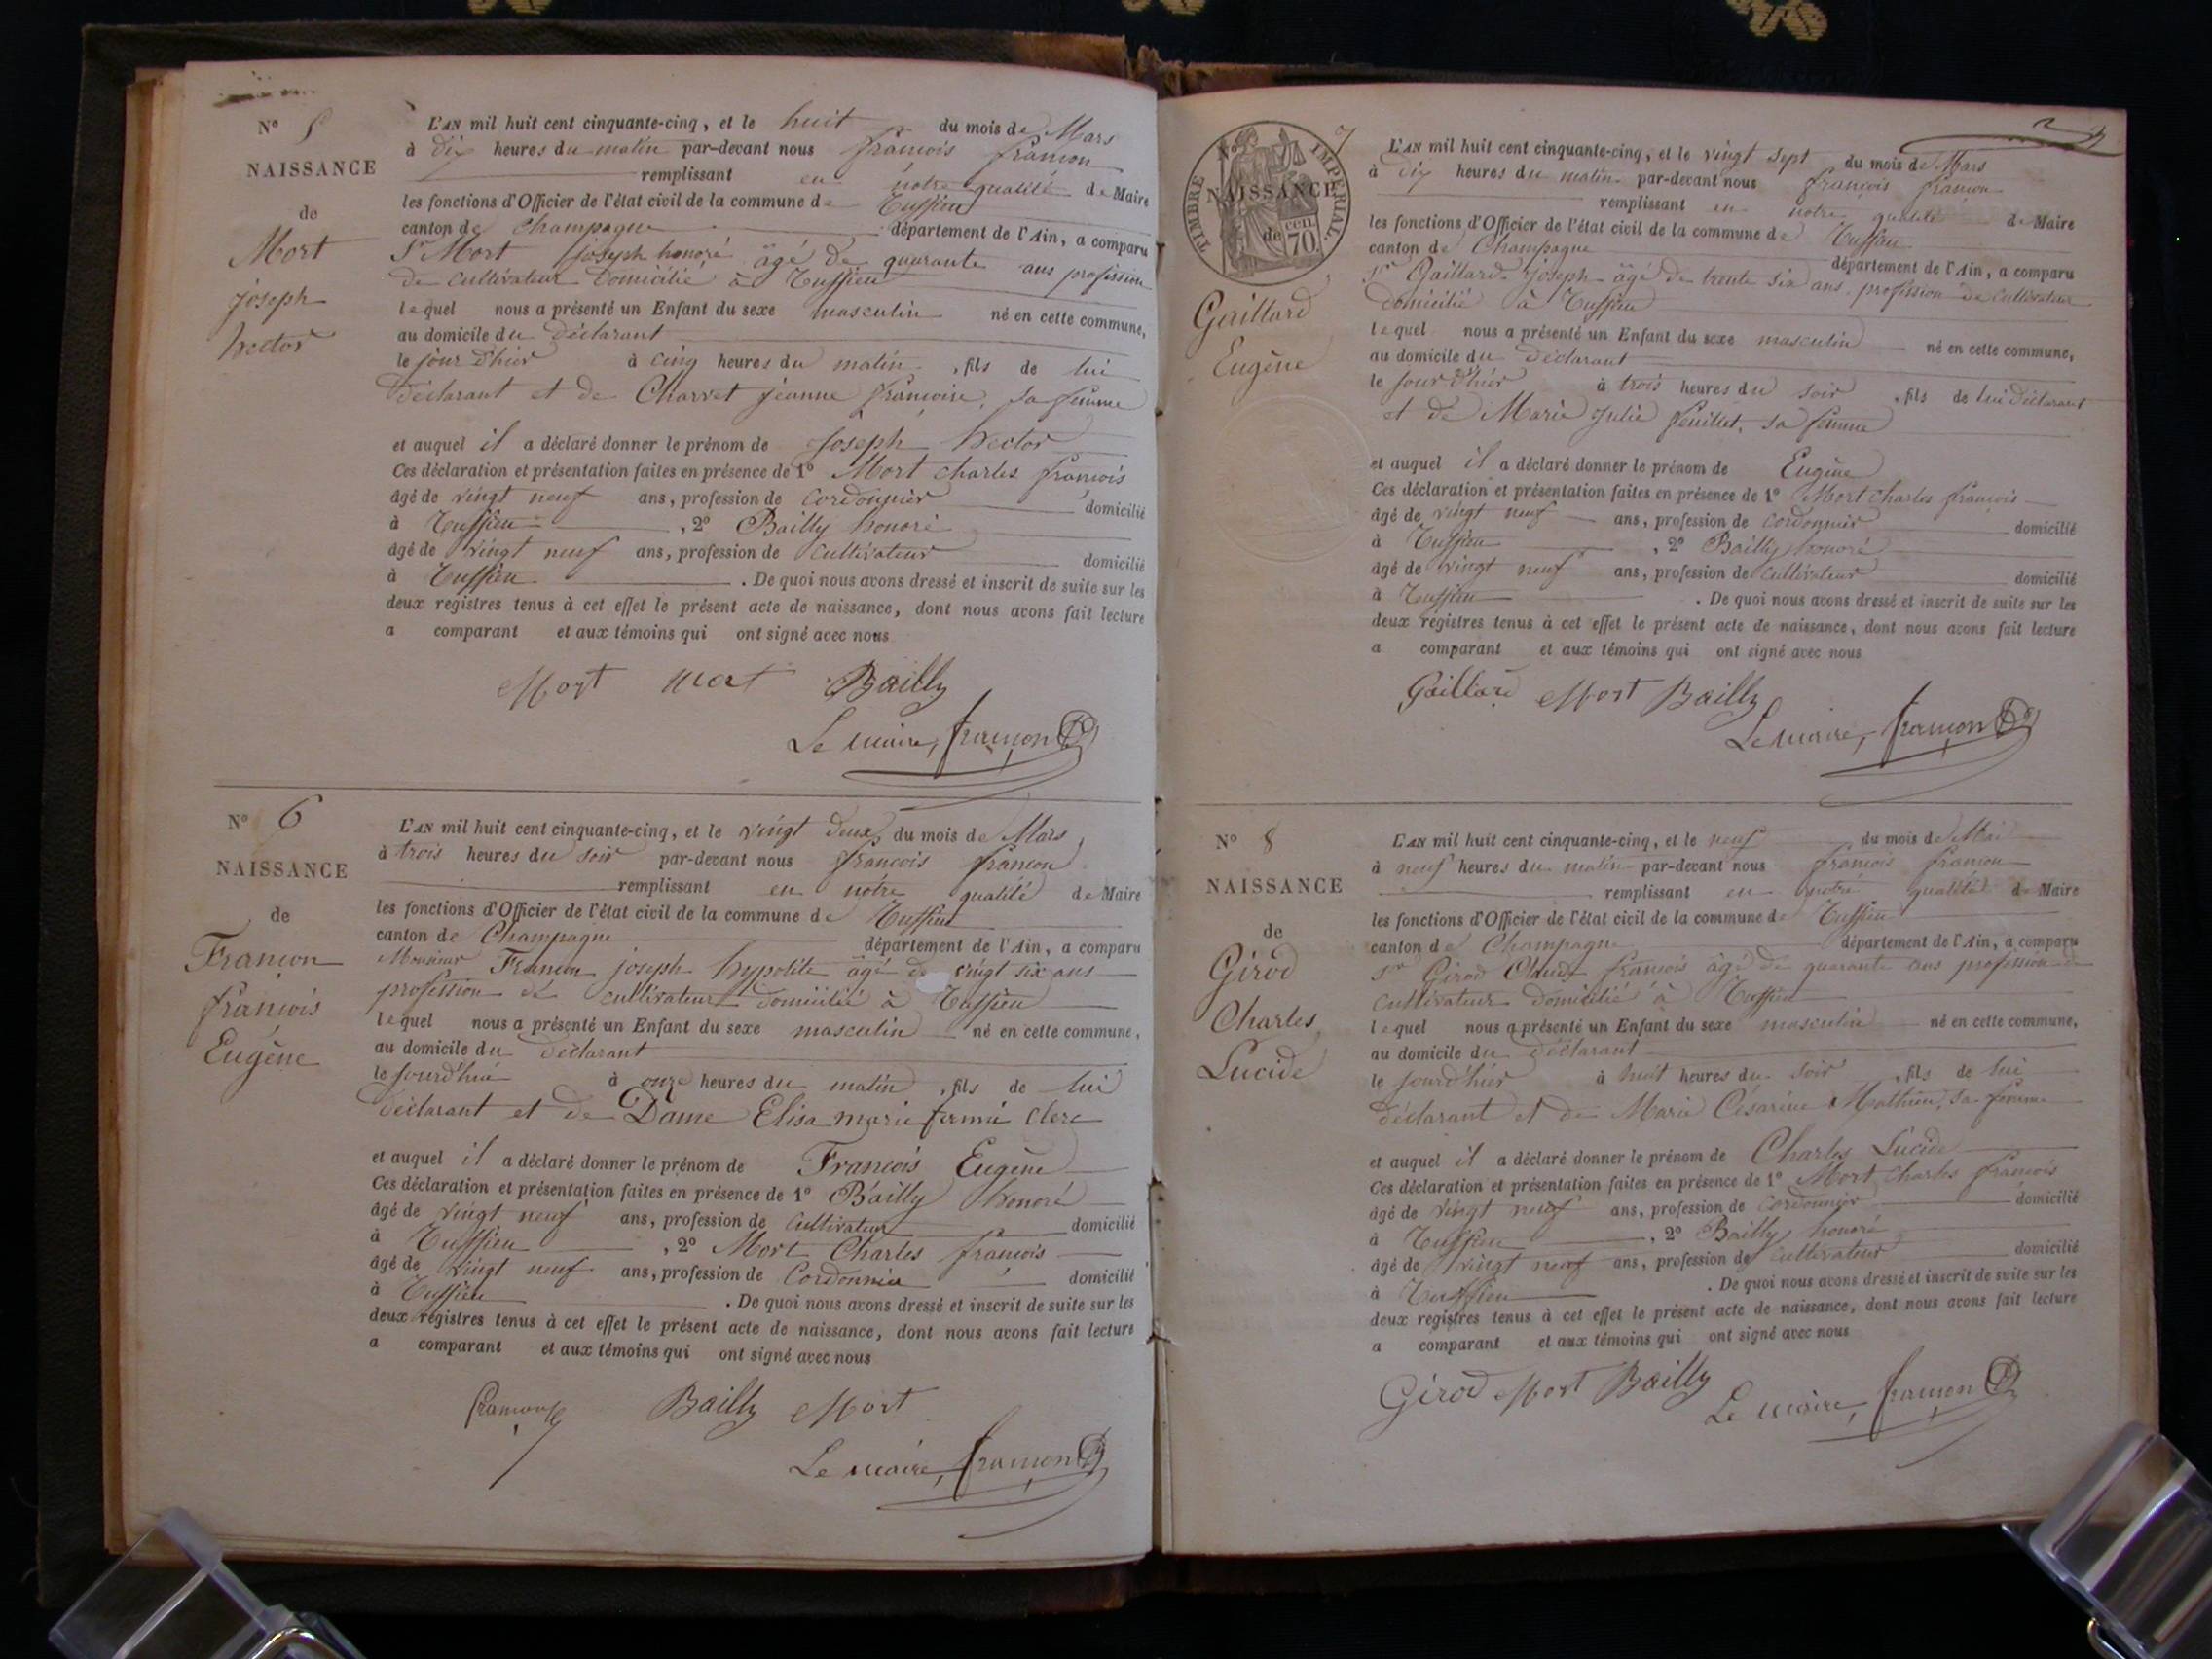 N° 5
NAISSANCE
de
Mort
joseph
hector
L'AN mil huit cent cinquante-cinq, et le huit du mois de Mars
à dix heures du matin par-devant nous françois françon
remplissant en notre qualité de Maire
les fonctions d'Officier de l'état civil de la commune de Tuffieu
canton de Champagne département de l'Ain, a comparu
Sr Mort joseph honoré âgé de quarante ans profession
de cultivateur domicilié à Tuffieu
lequel nous a présenté un Enfant du sexe masculin né en cette commune,
au domicile du déclarant
le jour d'hier à cinq heures du matin, fils de lui
déclarant et de Charvet jeanne françoise, sa femme
et auquel il a déclaré donner le prénom de Joseph hector
Ces déclaration et présentation faites en présence de 1° Mort charles françois
âgé de vingt neuf ans, profession de Cordonnier domicilié
à Tuffieu, 2° Bailly honoré
âgé de vingt neuf ans, profession de cultivateur domicilié
à Tuffieu. De quoi nous avons dressé et inscrit de suite sur les
deux registres tenus à cet effet le présent acte de naissance, dont nous avons fait lecture
a comparant et aux témoins qui ont signé avec nous
Mort Mort Bailly
Le maire, françon
N° 6
NAISSANCE
de
Françon
françois
Eugène
L'AN mil huit cent cinquante-cinq, et le vingt deux du mois de Mars,
à trois heures du soir par-devant nous françois françon
remplissant en notre qualité de Maire
les fonctions d'Officier de l'état civil de la commune de Tuffieu
canton de Champagne département de l'Ain, a comparu
Monsieur Françon joseph hypolite âgé de vingt six ans
profession de cultivateur domicilié à Tuffieu
lequel nous a présenté un Enfant du sexe masculin né en cette commune,
au domicile du déclarant
le jourd'hui à onze heures du matin, fils de lui
déclarant et de Dame Elisa marie fanni Clerc
et auquel il a déclaré donner le prénom de François Eugène
Ces déclaration et présentation faites en présence de 1° Bailly honoré
âgé de vingt neuf ans, profession de cultivateur domicilié
à Tuffieu, 2° Mort Charles françois
âgé de vingt neuf ans, profession de Cordonnier domicilié
à Tuffieu. De quoi nous avons dressé et inscrit de suite sur les
deux registres tenus à cet effet le présent acte de naissance, dont nous avons fait lecture
a comparant et aux témoins qui ont signé avec nous
françon Bailly Mort
Le maire, françon
N° 7
TIMBRE IMPERIAL
NAISSANCE
de
70 cen.
Gaillard
Eugène
L'AN mil huit cent cinquante-cinq, et le vingt sept du mois de Mars
à dix heures du matin par-devant nous françois françon
remplissant en notre qualité de Maire
les fonctions d'Officier de l'état civil de la commune de Tuffieu
canton de Champagne département de l'Ain, a comparu
Sr Gaillard joseph âgé de trente six ans profession de cultivateur
domicilié à Tuffieu
lequel nous a présenté un Enfant du sexe masculin né en cette commune,
au domicile du déclarant
le jour d'hier à trois heures du soir, fils de lui déclarant
et de Marie Julie feuillet, sa femme
et auquel il a déclaré donner le prénom de Eugène
Ces déclaration et présentation faites en présence de 1° Mort charles françois
âgé de vingt neuf ans, profession de cordonnier domicilié
à Tuffieu, 2° Bailly honoré
âgé de vingt neuf ans, profession de cultivateur domicilié
à Tuffieu. De quoi nous avons dressé et inscrit de suite sur les
deux registres tenus à cet effet le présent acte de naissance, dont nous avons fait lecture
a comparant et aux témoins qui ont signé avec nous
Gaillard Mort Bailly
Le maire, françon
N° 8
NAISSANCE
de
Girod
Charles
Lucide
L'AN mil huit cent cinquante-cinq, et le neuf du mois de Mai
à neuf heures du matin par-devant nous françois françon
remplissant en notre qualité de Maire
les fonctions d'Officier de l'état civil de la commune de Tuffieu
canton de Champagne département de l'Ain, a comparu
Sr Girod Claude françois âgé de quarante ans profession de
cultivateur domicilié à Tuffieu
lequel nous a présenté un Enfant du sexe masculin né en cette commune,
au domicile du déclarant
le jourd'hier à huit heures du soir, fils de lui
déclarant et de Marie Césarine Mathieu, sa femme
et auquel il a déclaré donner le prénom de Charles Lucide
Ces déclaration et présentation faites en présence de 1° Mort Charles françois
âgé de vingt neuf ans, profession de cordonnier domicilié
à Tuffieu, 2° Bailly honoré
âgé de vingt neuf ans, profession de cultivateur domicilié
à Tuffieu. De quoi nous avons dressé et inscrit de suite sur les
deux registres tenus à cet effet le présent acte de naissance, dont nous avons fait lecture
a comparant et aux témoins qui ont signé avec nous
Girod Mort Bailly
Le maire, françon